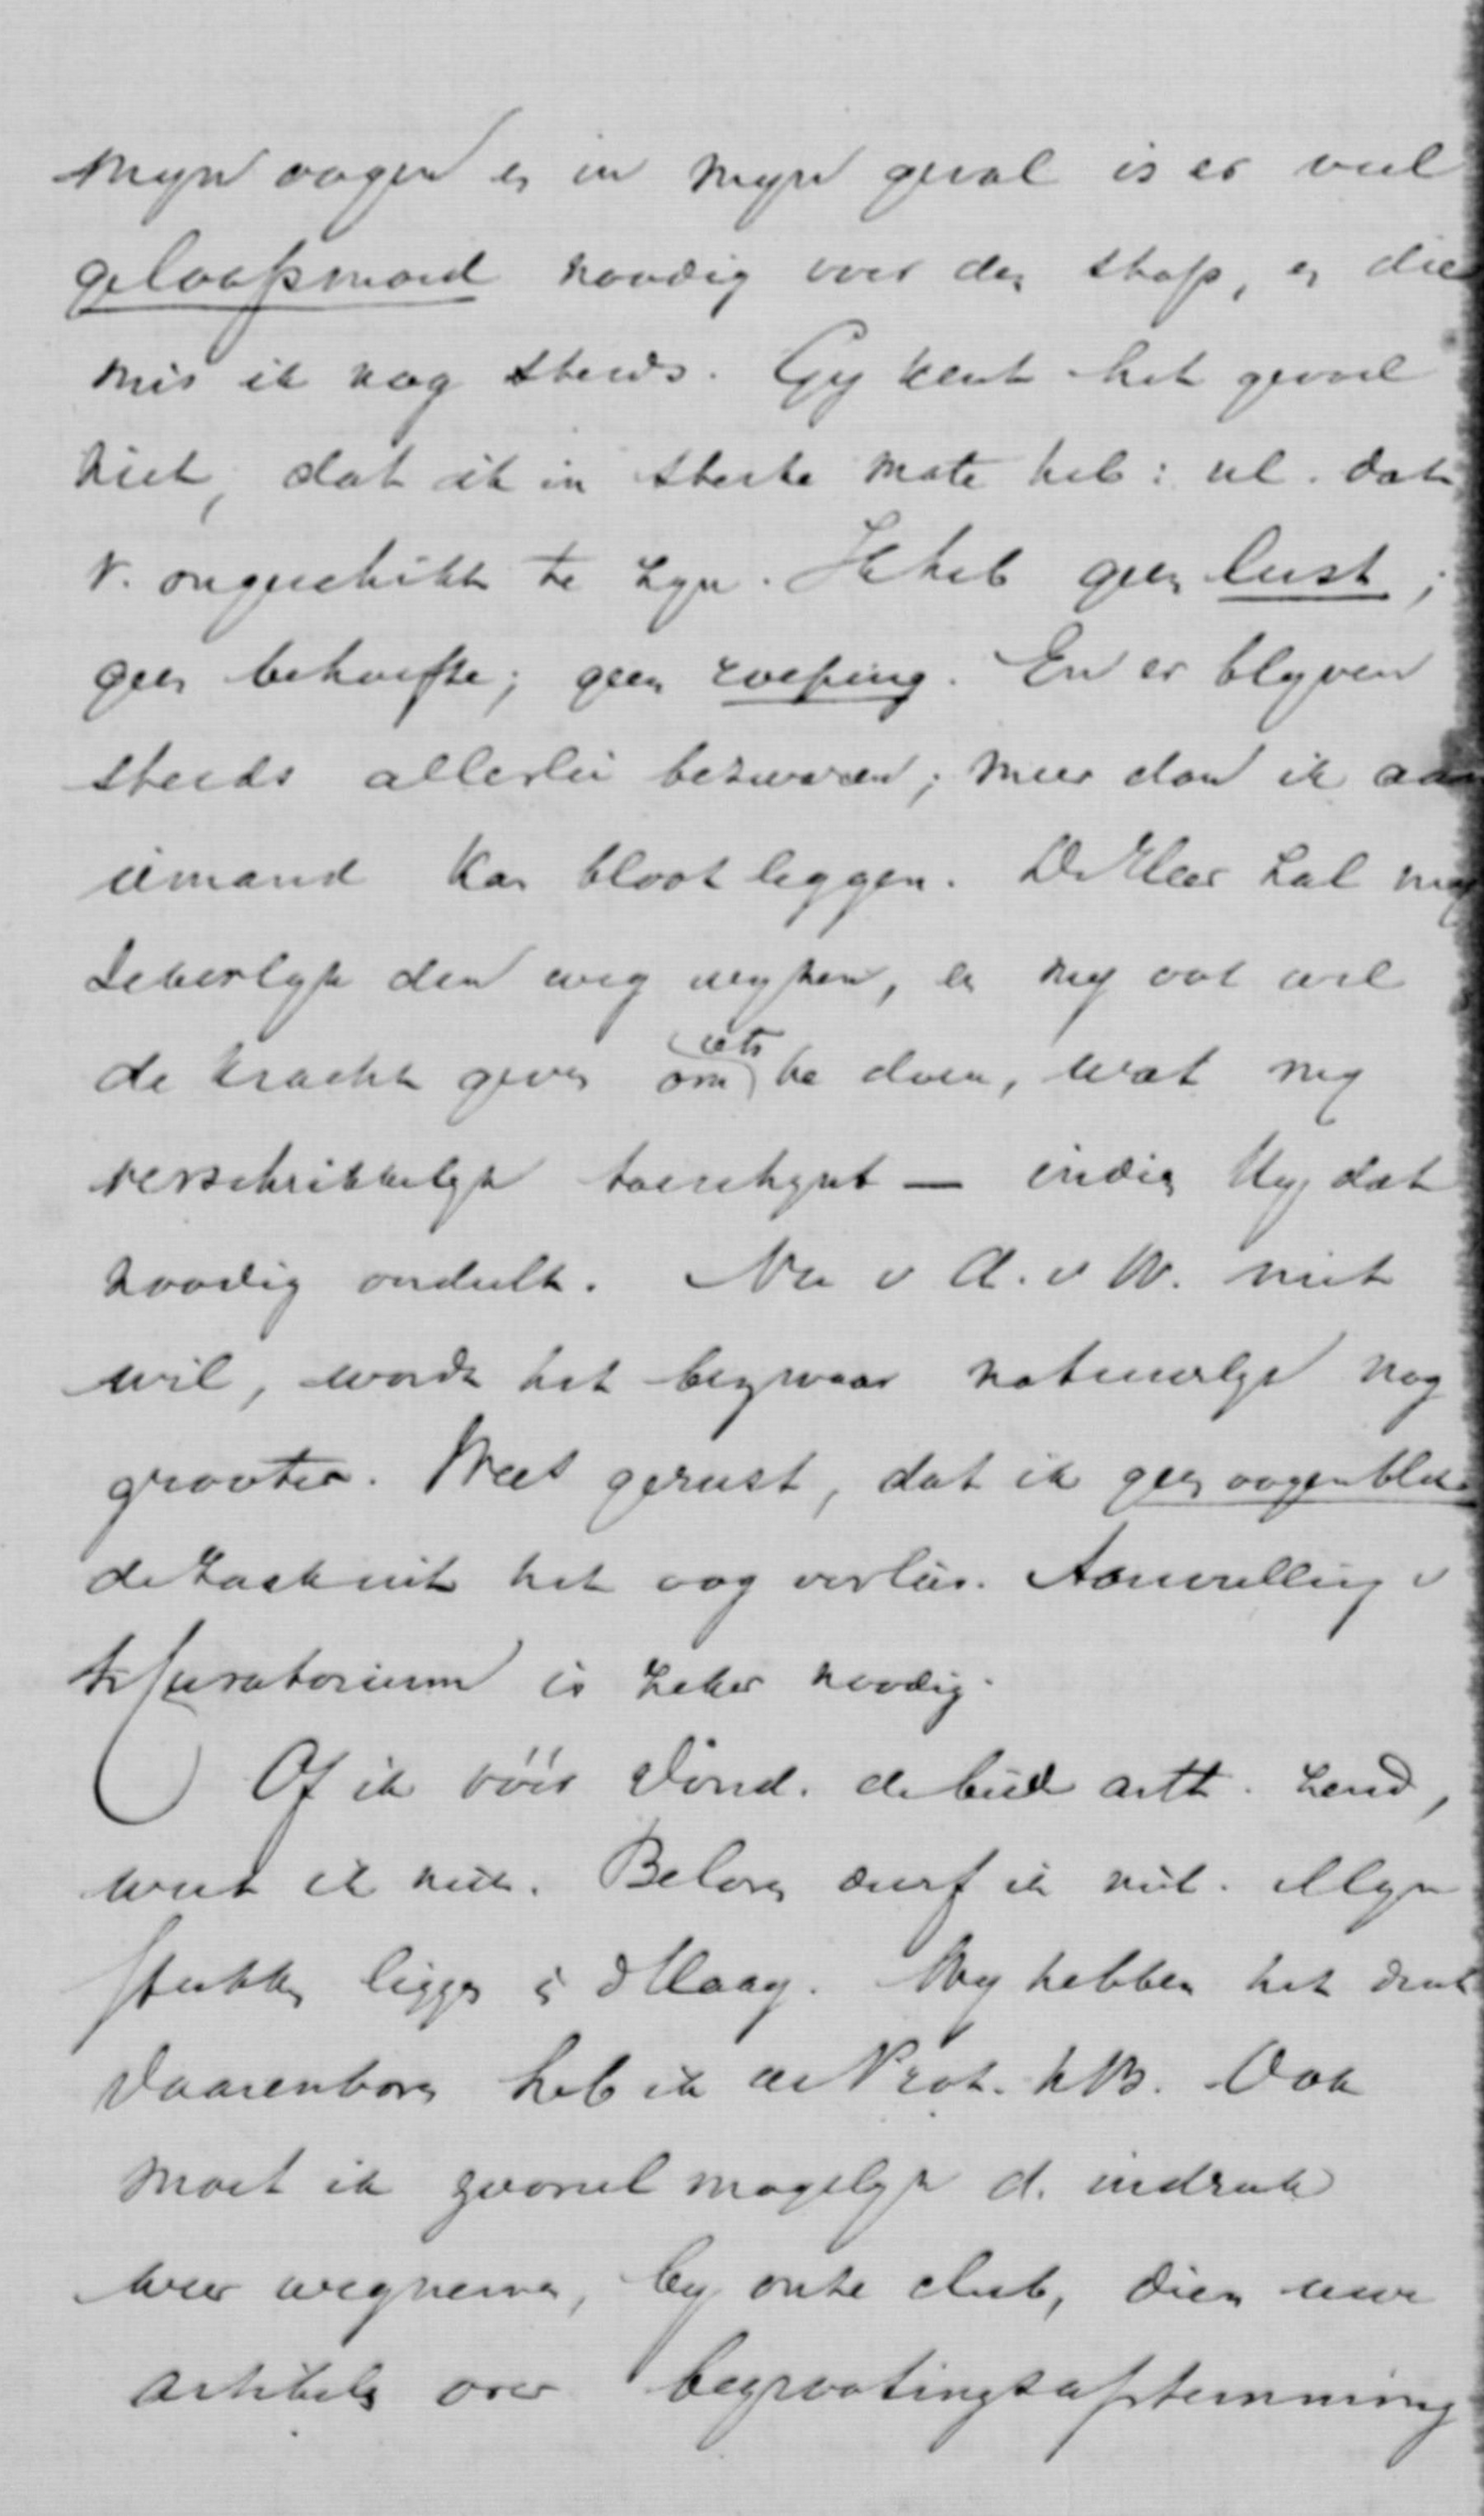 myn oogen en in myn geval is er veel
geloofsmoed noodig voor den stap, en die
mis ik nog steeds. Gy kent het gevoel
niet, dat ik in sterke mate heb: nl. dat
v. ongeschikt te zyn. Ik heb geen lust;
geen behoefte; geen roeping. En er blyven
steeds allerlei bezwaren; meer dan ik aan
iemand kan blootleggen. De Heer zal my
zekerlyk den weg wyzen, en my ook wel
de kracht geven om iets te doen, wat my
verschrikkelyk toeschynt — indien Hy dat
noodig oordeelt. Nu v A. v W. niet
wil, wordt het bezwaar natuurlyk nog
grooter. Wees gerust, dat ik geen oogenblik
de zaak uit het oog verlies. Aanvulling v
h Curatorium is zeker noodig.
Of ik vóór Dond. de bied artt. zend,
weet ik niet. Beloven durf ik niet. Myn
stukken liggen in d Haag. Wy hebben het druk
Daarenboven heb ik de Prot. h B. Ook
moet ik zooveel mogelyk d. indruk
weer wegnemen, by onze club, dien uwe
artikels over begrootingsafstemming